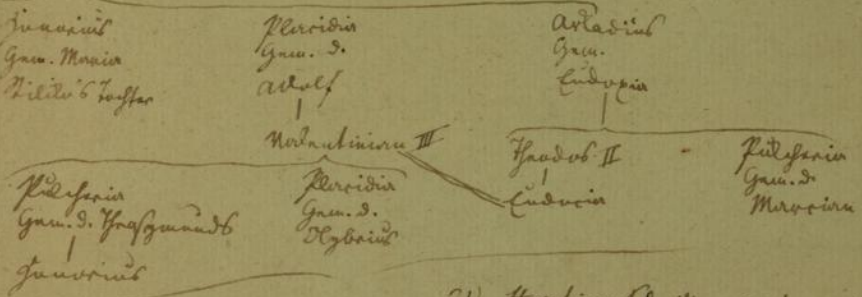 Honorius
Gem. Maria
Stiliko's Tochter
Placidia
Gem. d.
Adolf
Arkadius
Gem.
Eudoxia
Valentinian III
Theodos II
Eudocia
Pulcheria
Gem. d.
Marcian
Pulcheria
Gem. d. Thrasymunds
Honorius
Placidia
Gem. d.
Olybrius